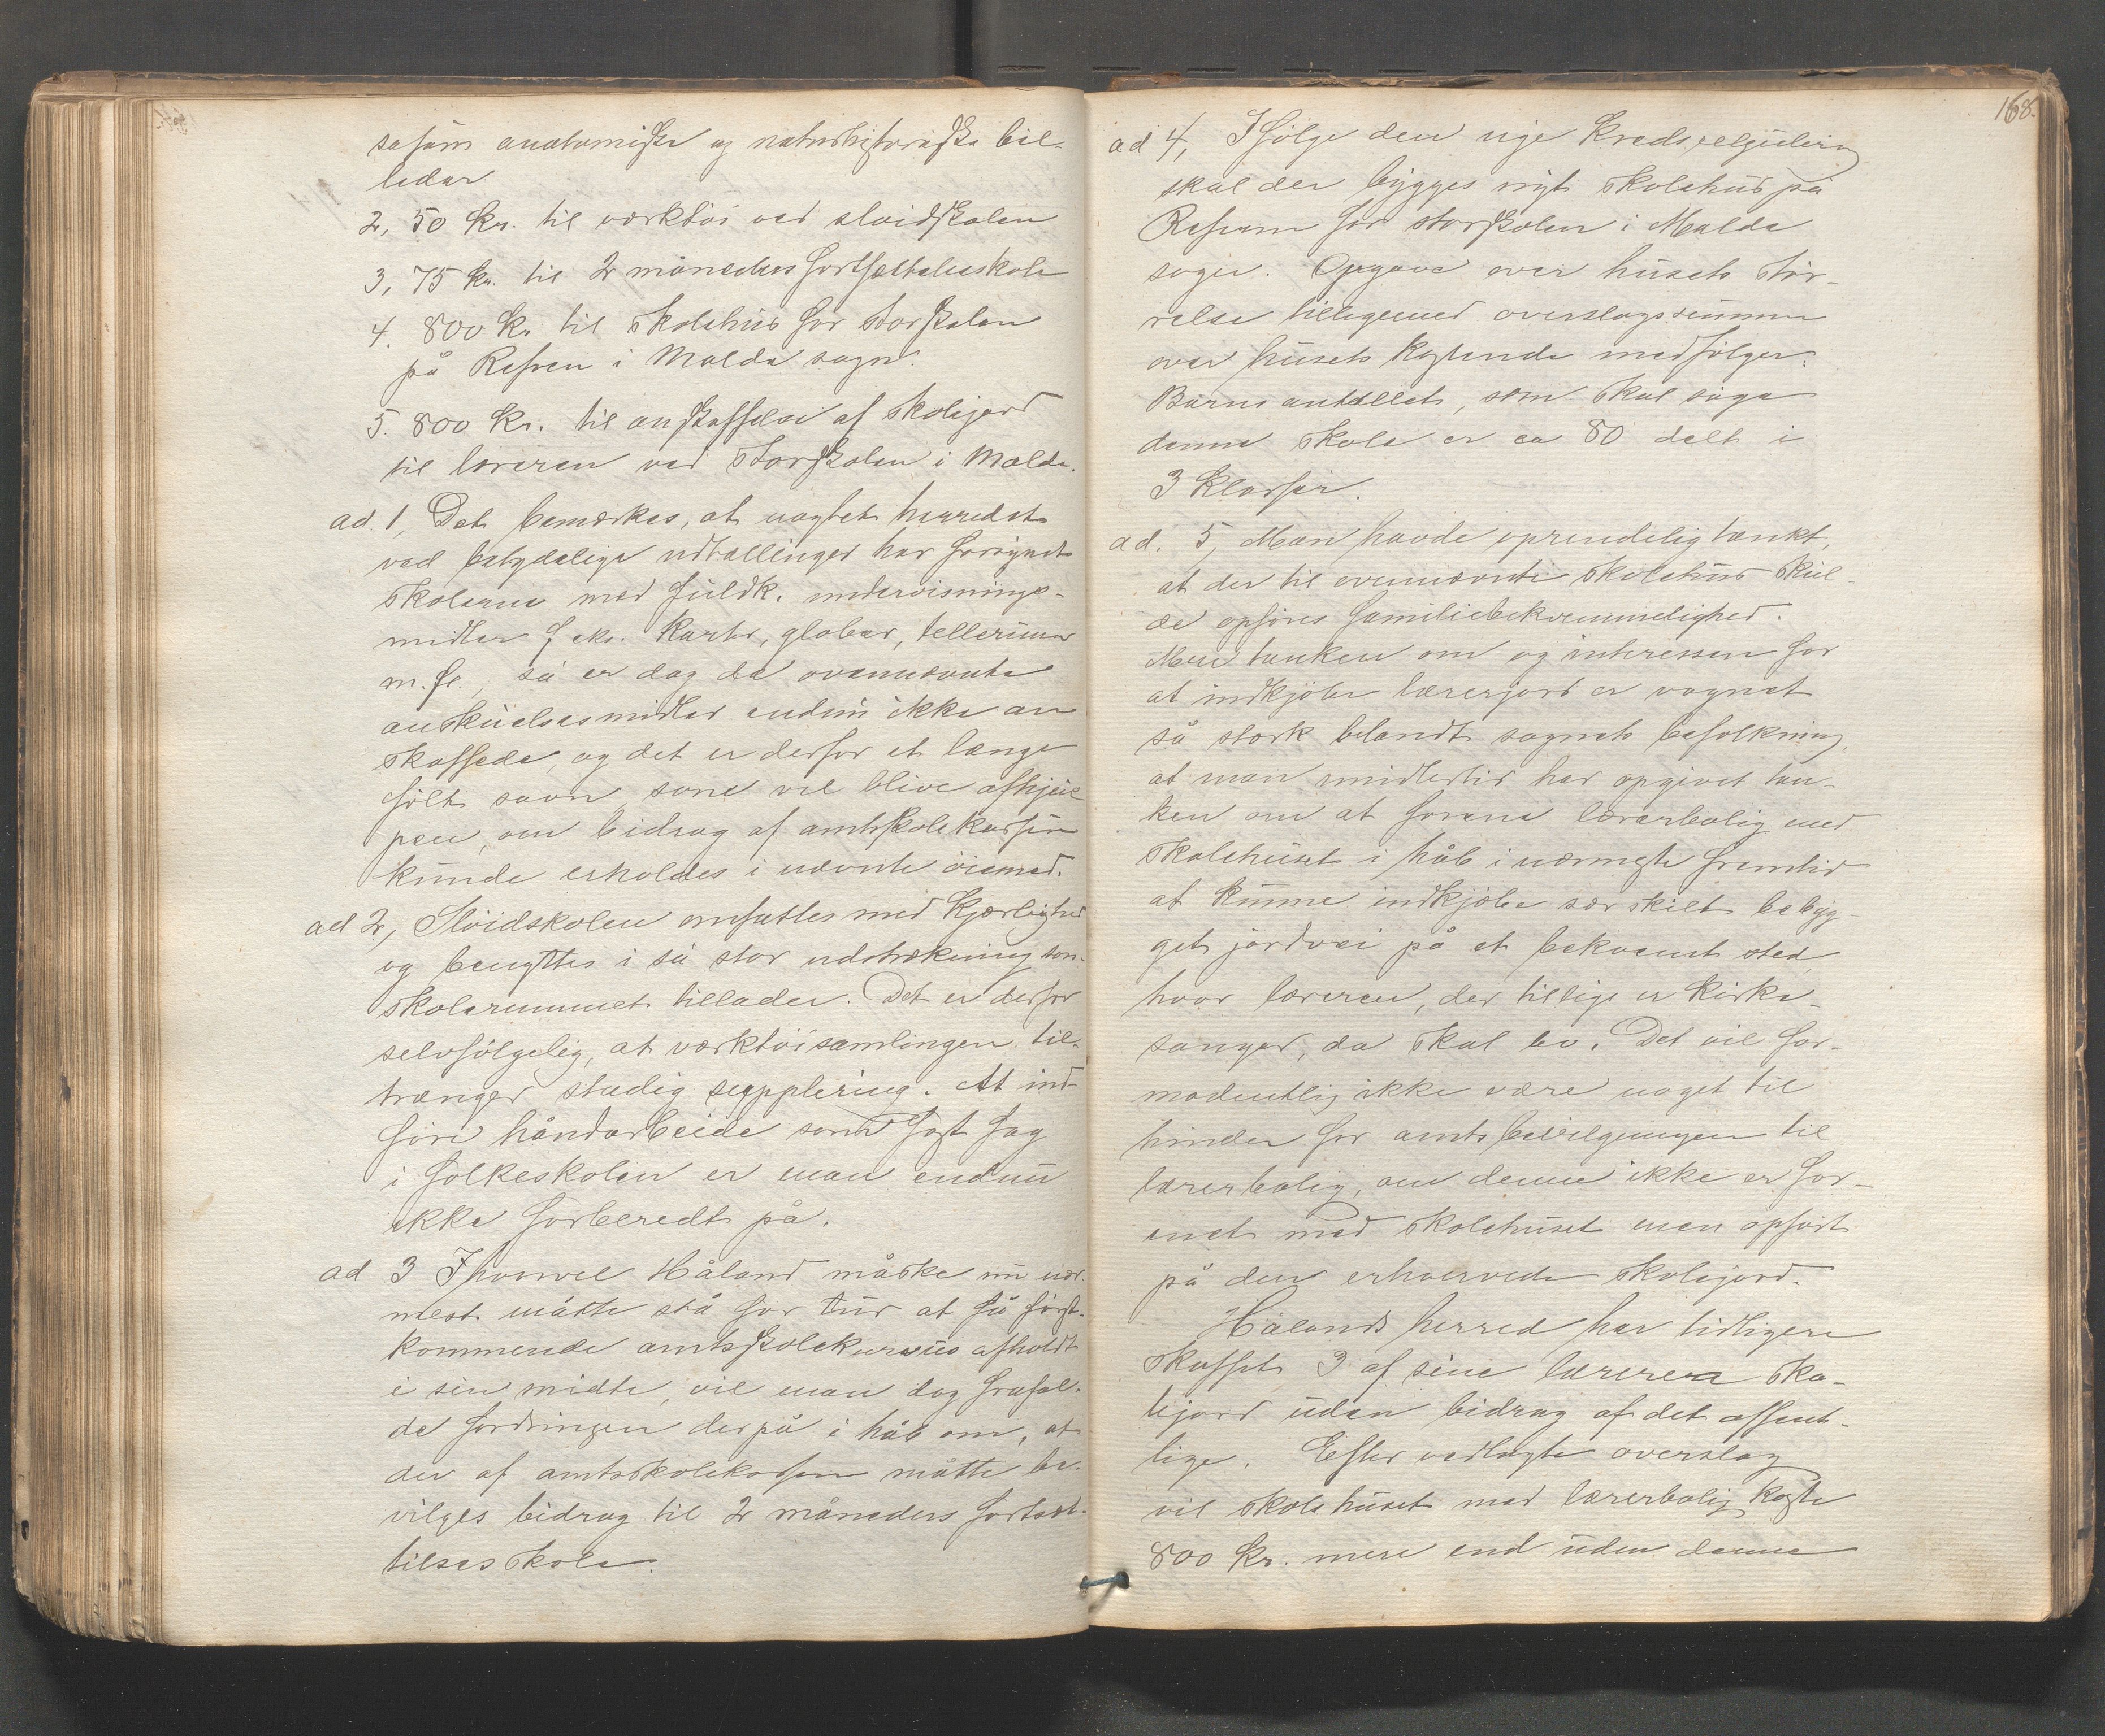 såsom anatomiske og naturhistoriske bil-
leder
2, 50 Kr. til værktöi ved slöidskolen
3, 75 Kr. til 2 måneders fortsættelsesskole
4. 800 Kr. til skolehus for storskolen
på Refsen i Malde sogn.
5. 800 Kr. til anskaffelse af skolejord
til læreren ved storskolen i Malde.
ad. 1, Det bemærkes, at uagtet herredet
ved betydelige udtællinger har forsynet
skolerne med fuldk. undervisnings-
midler f. eks. karter, glober, tellurium
m. fl., så er dog de ovennævnte
anskuelsesmidler endnu ikke an
skaffede, og det er derfor et længe
fölt savn, som vil blive afhjul
pen, om bidrag af amtsskolekassen
kunde erholdes i nævnte öiemed.
ad 2, Slöidskolen omfattes med kjærlighed
og benyttes i så stor udstrækning som
skolerummet tillader. Det er derfor
selvfölgelig, at værktöisamlingen til-
trænger stadig supplering. At ind
före håndarbeide som fast fag
i folkeskolen er man endnu
ikke forberedt på.
ad 3 Ihvorvel Håland måske nu nær-
mest måtte stå for tur at få först-
kommende amtsskolekursus afholdt
i sin midte, vil man dog frafal-
de fordringen derpå i håb om, at
der af amtsskolekassen måtte be-
vilges bidrag til 2 måneders fortsæt-
telsesskole.
168.
ad 4, Ifölge den nye kredsregulering
skal der bygges nyt skolehus på
Refsen for storskolen i Malde
sogn. Opgave over husets stör-
relse tilligemed overslagssummen
over husets kostende medfölger.
Barneantallet, som skal söge
denne skole er ca 80 delt i
3 klasser.
ad. 5, Man havde oprindelig tænkt,
at der til ovennævnte skolehus skul-
de opföres familiebekvemmelighed.
Men tanken om og interessen for
at indkjöbe lærerjord er vagnet
så stærk blandt sognets befolkning,
at man imidlertid har opgivet tan-
ken om at forene lærerbolig med
skolehuset i håb i nærmeste fremtid
at kunne indkjöbe særskilt bebyg-
get jordvei på et bekvemt sted,
hvor læreren, der tillige er kirke-
sanger, da skal bo. Det vil for-
modentlig ikke være noget til
hinder for amtsbevilgningen til
lærerbolig, om denne ikke er for-
enet med skolehuset men opfört
på den erhvervede skolejord.
Hålands herred har tidligere
skaffet 3 af sine lærere sko-
lejord uden bidrag af det offent-
lige. Efter vedlagte overslag
vil skolehuset med lærerbolig koste
800 Kr. mere end uden denne